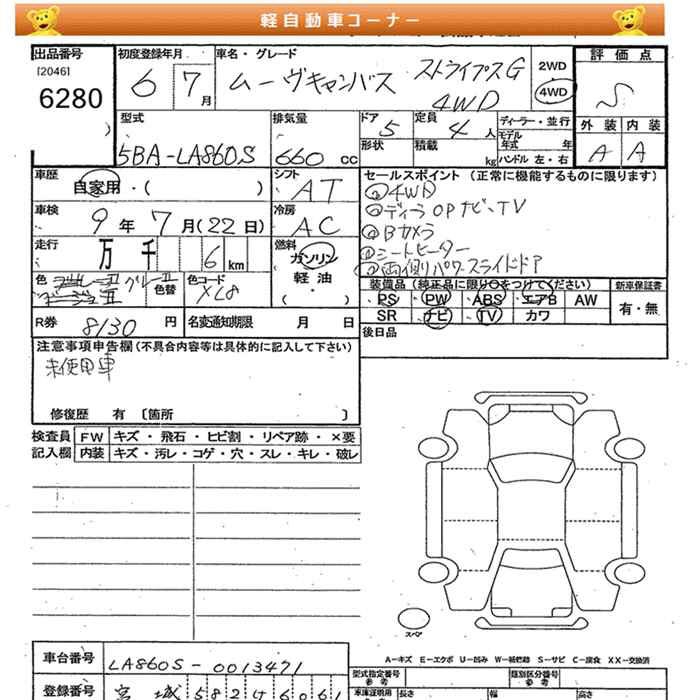 軽自動車コーナー
出品番号
[2046]
6280
初度登録年月
6 7月
車名・グレード
ムーヴキャンバス ストライプスG
4WD
2WD
4WD
評価点
S
外装 内装
A A
型式
5BA-LA860S
排気量
660 cc
ドア
5
定員
4人
形状
積載
kg
ディーラー・並行
モデル
年式 年
ハンドル 左・右
車歴
自家用・( )
シフト
AT
セールスポイント(正常に機能するものに限ります)
①4WD
②ディーラOPナビ、TV
③Bカメラ
④シートヒーター
⑤両側パワースライドドア
車検
9年7月(22日)
冷房
AC
走行
万千 6 km
燃料
ガソリン
軽油
・
色
グレーII
色替
色コード
XL8
装備品(純正品に限り○をつけてください)
PS PW ABS エアB AW
SR ナビ TV カワ
新車保証書
有・無
R券 8130 円
名変通知期限 月 日
後日品
注意事項申告欄(不具合内容等は具体的に記入して下さい)
未使用車
修復歴 有 〔箇所 〕
検査員
記入欄
FW キズ・飛石・ヒビ割・リペア跡・×要
内装 キズ・汚レ・コゲ・穴・スレ・キレ・破レ
スペア
A-キズ E-エクボ U-凹み W-補修跡 S-サビ C-腐食 XX-交換済
車台番号
LA860S-0013471
登録番号
宮城 582
型式指定番号
参考
類別区分番号
参考
車庫証明用
長さ 幅 高さ